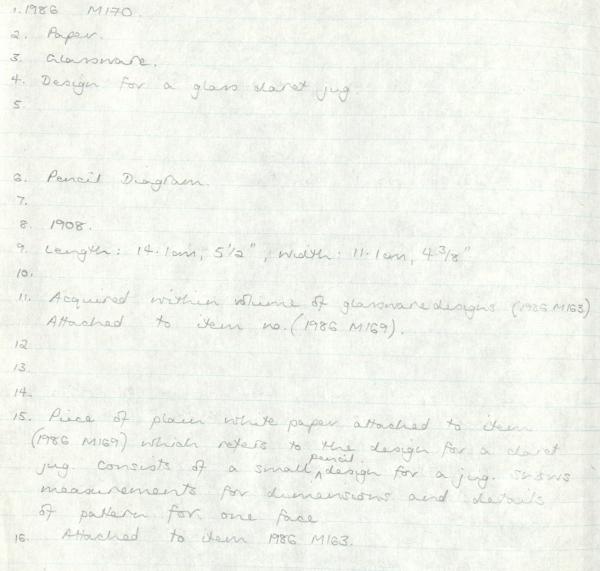 1. 1986 M170.
2. Paper.
3. Glassware.
4. Design for a glass claret jug.
5.
6. Pencil Diagram.
7.
8. 1908.
9. Length: 14.1cm, 5 1/2", width: 11.1cm, 4 3/8"
10.
11. Acquired within volume of glassware designs (1986 M163)
Attached to item no. (1986 M169).
12
13.
14.
15. Piece of plain white paper attached to item
(1986 M169) which refers to the design for a claret
jug consists of a small pencil design for a jug. shows
measurements for dimensions and details
of pattern for one face
16. Attached to item 1986 M163.